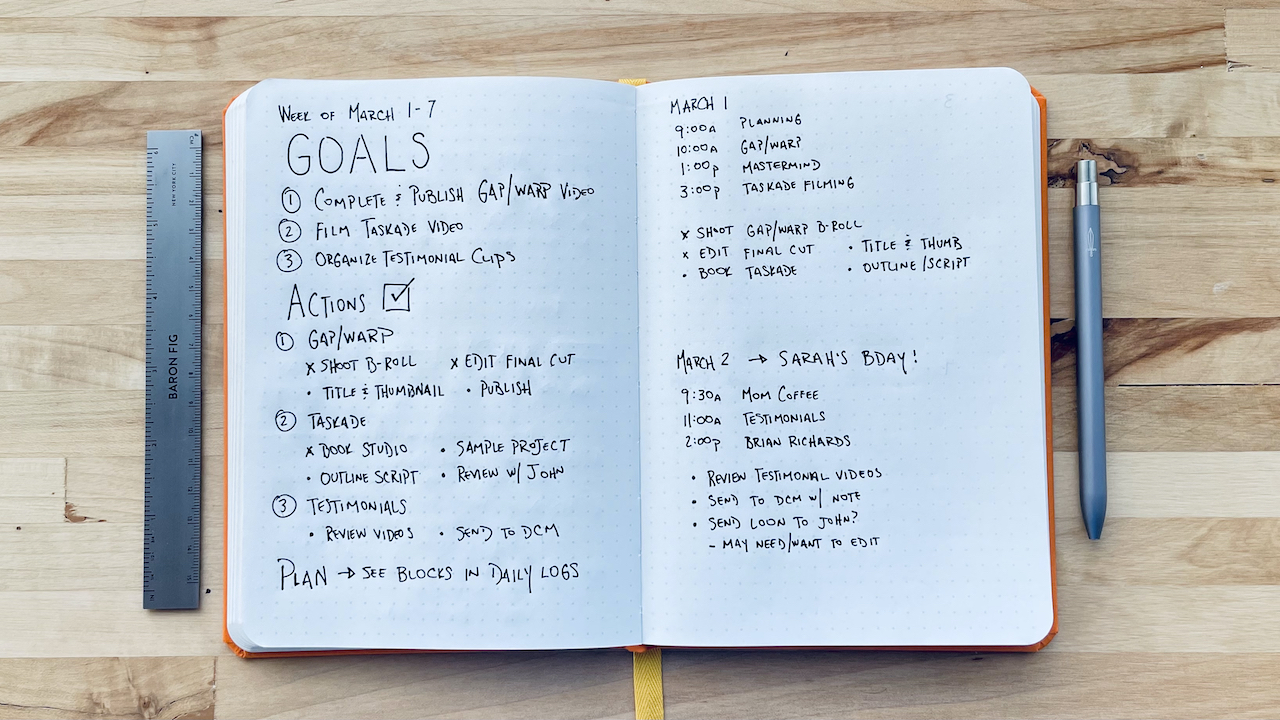 Week of March 1-7
GOALS
① Complete & Publish Gap/Warp Video
② Film Taskade Video
③ Organize Testimonial Clips
Actions ☑
① Gap/Warp
x Shoot B-Roll x Edit Final Cut
• Title & Thumbnail • Publish
② Taskade
x Book Studio • Sample Project
• Outline Script • Review w/ John
③ Testimonials
• Review Videos • Send to DCM
Plan → See Blocks in Daily Logs
March 1
9:00a Planning
10:00a Gap/Warp
1:00p Mastermind
3:00p Taskade Filming
x Shoot Gap/Warp B-Roll
x Edit Final Cut • Title & Thumb
• Book Taskade • Outline/Script
March 2 → Sarah's Bday!
9:30a Mom Coffee
11:00a Testimonials
2:00p Brian Richards
• Review Testimonal Videos
• Send to DCM w/ Note
• Send Loon to John?
– May Need/Want to Edit
BARON FIG
NEW YORK CITY